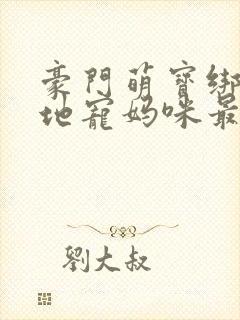 豪門萌寶綁
地寵媽咪最
劉大叔